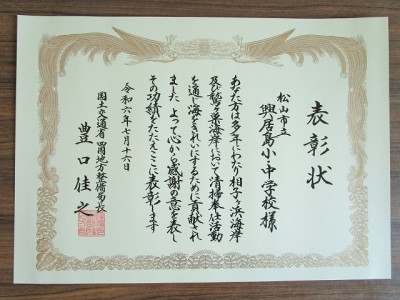 表彰状
松山市立
興居島小・中学校様
あなた方は多年にわたり相子ヶ浜海岸
及び鷲ヶ巣海岸において清掃奉仕活動
を通じ海をきれいにするために貢献され
ました よって心から感謝の意を表し
その功績をたたえここに表彰します
令和六年七月十六日
国土交通省 四国地方整備局長
豊口佳之